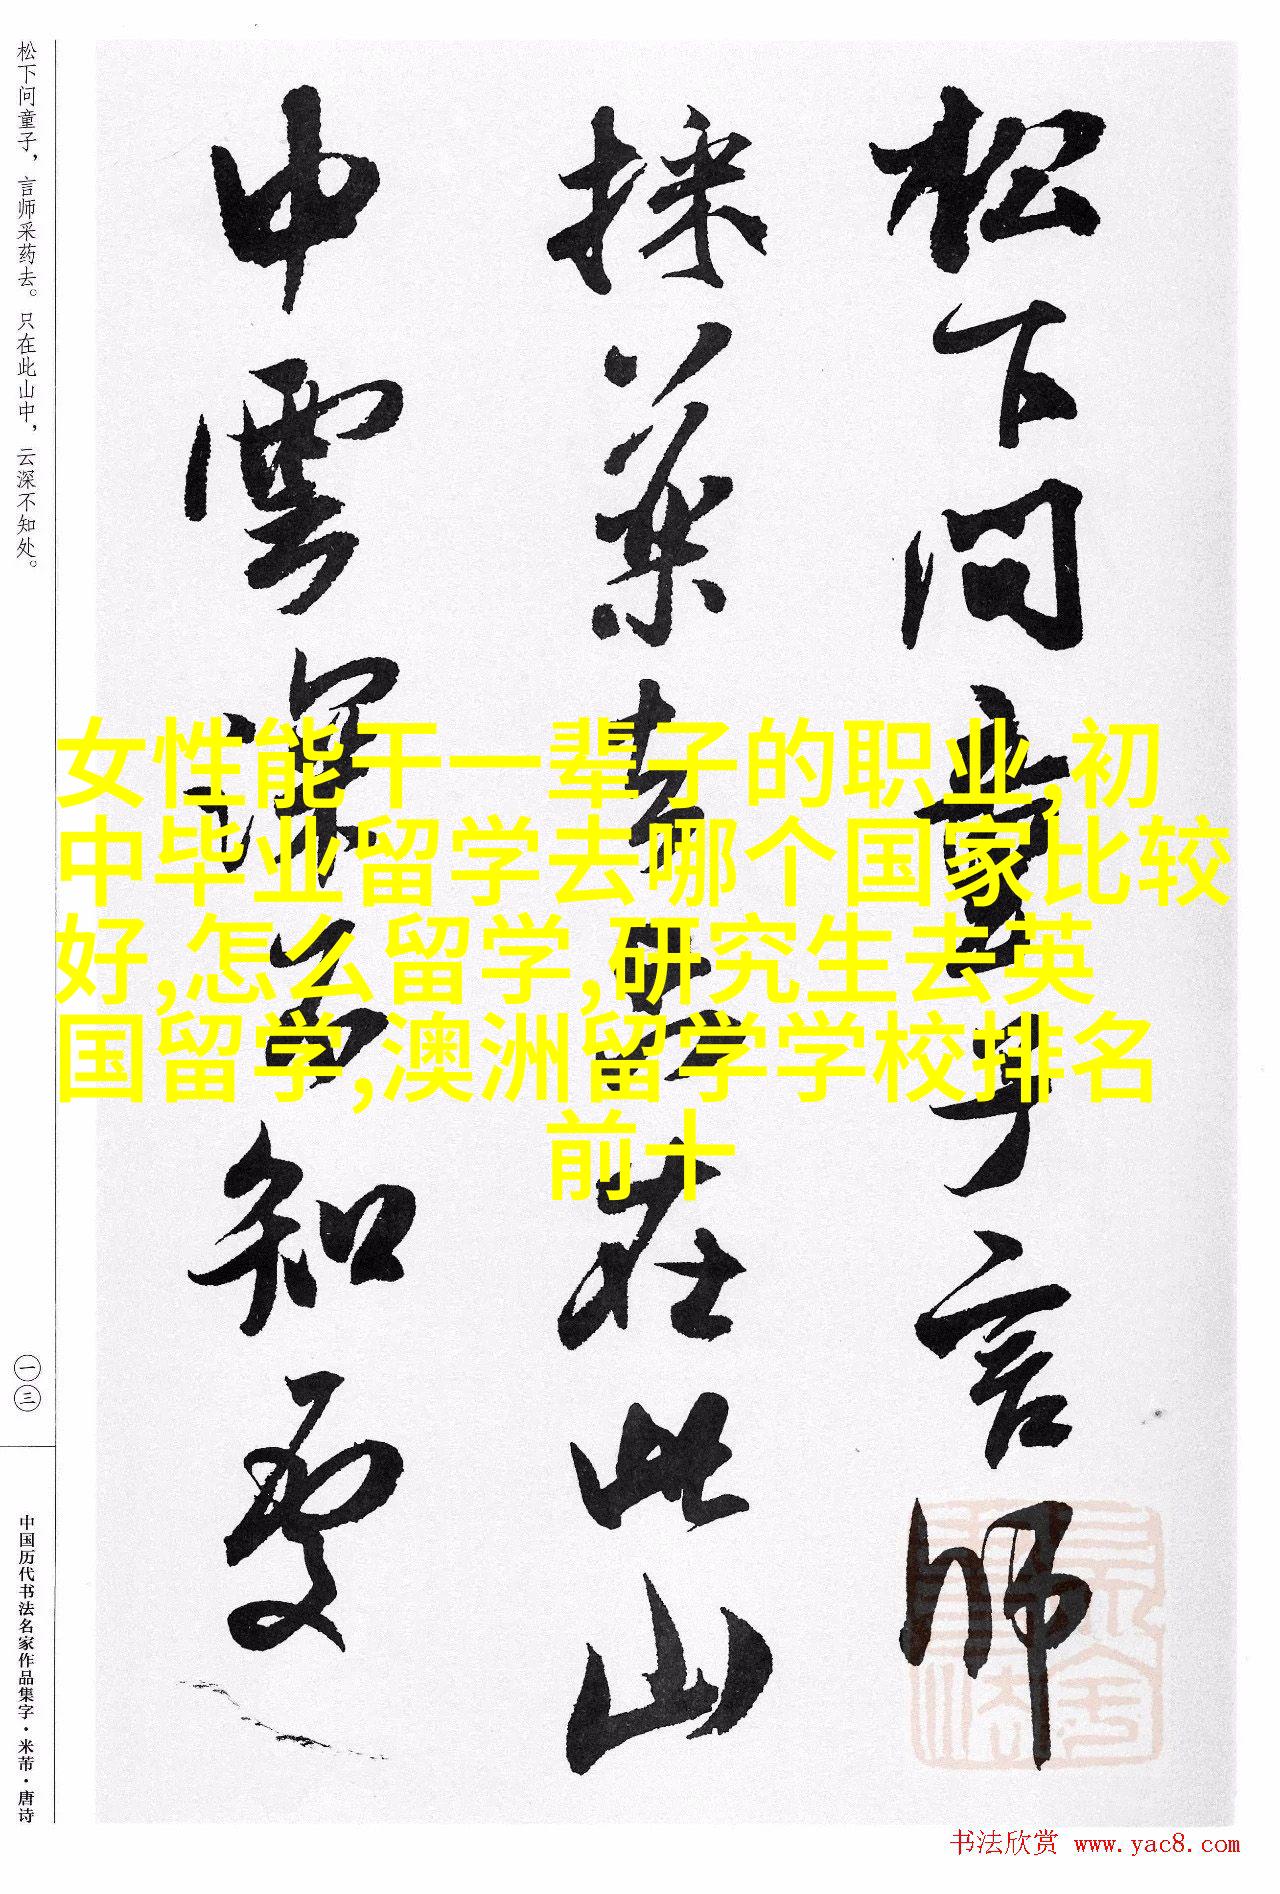 松下问童子，言师采药去。只在此山中，云深不知处。
松下问童子言师
採藥去只在此山
中雲深不知處
女性能干一辈子的职业,初
中毕业留学去哪个国家比较
好,怎么留学,研究生去英
国留学,澳洲留学学校排名
前十
一三
中国历代书法名家作品集字·米芾·唐诗
书法欣赏 www.yac8.com